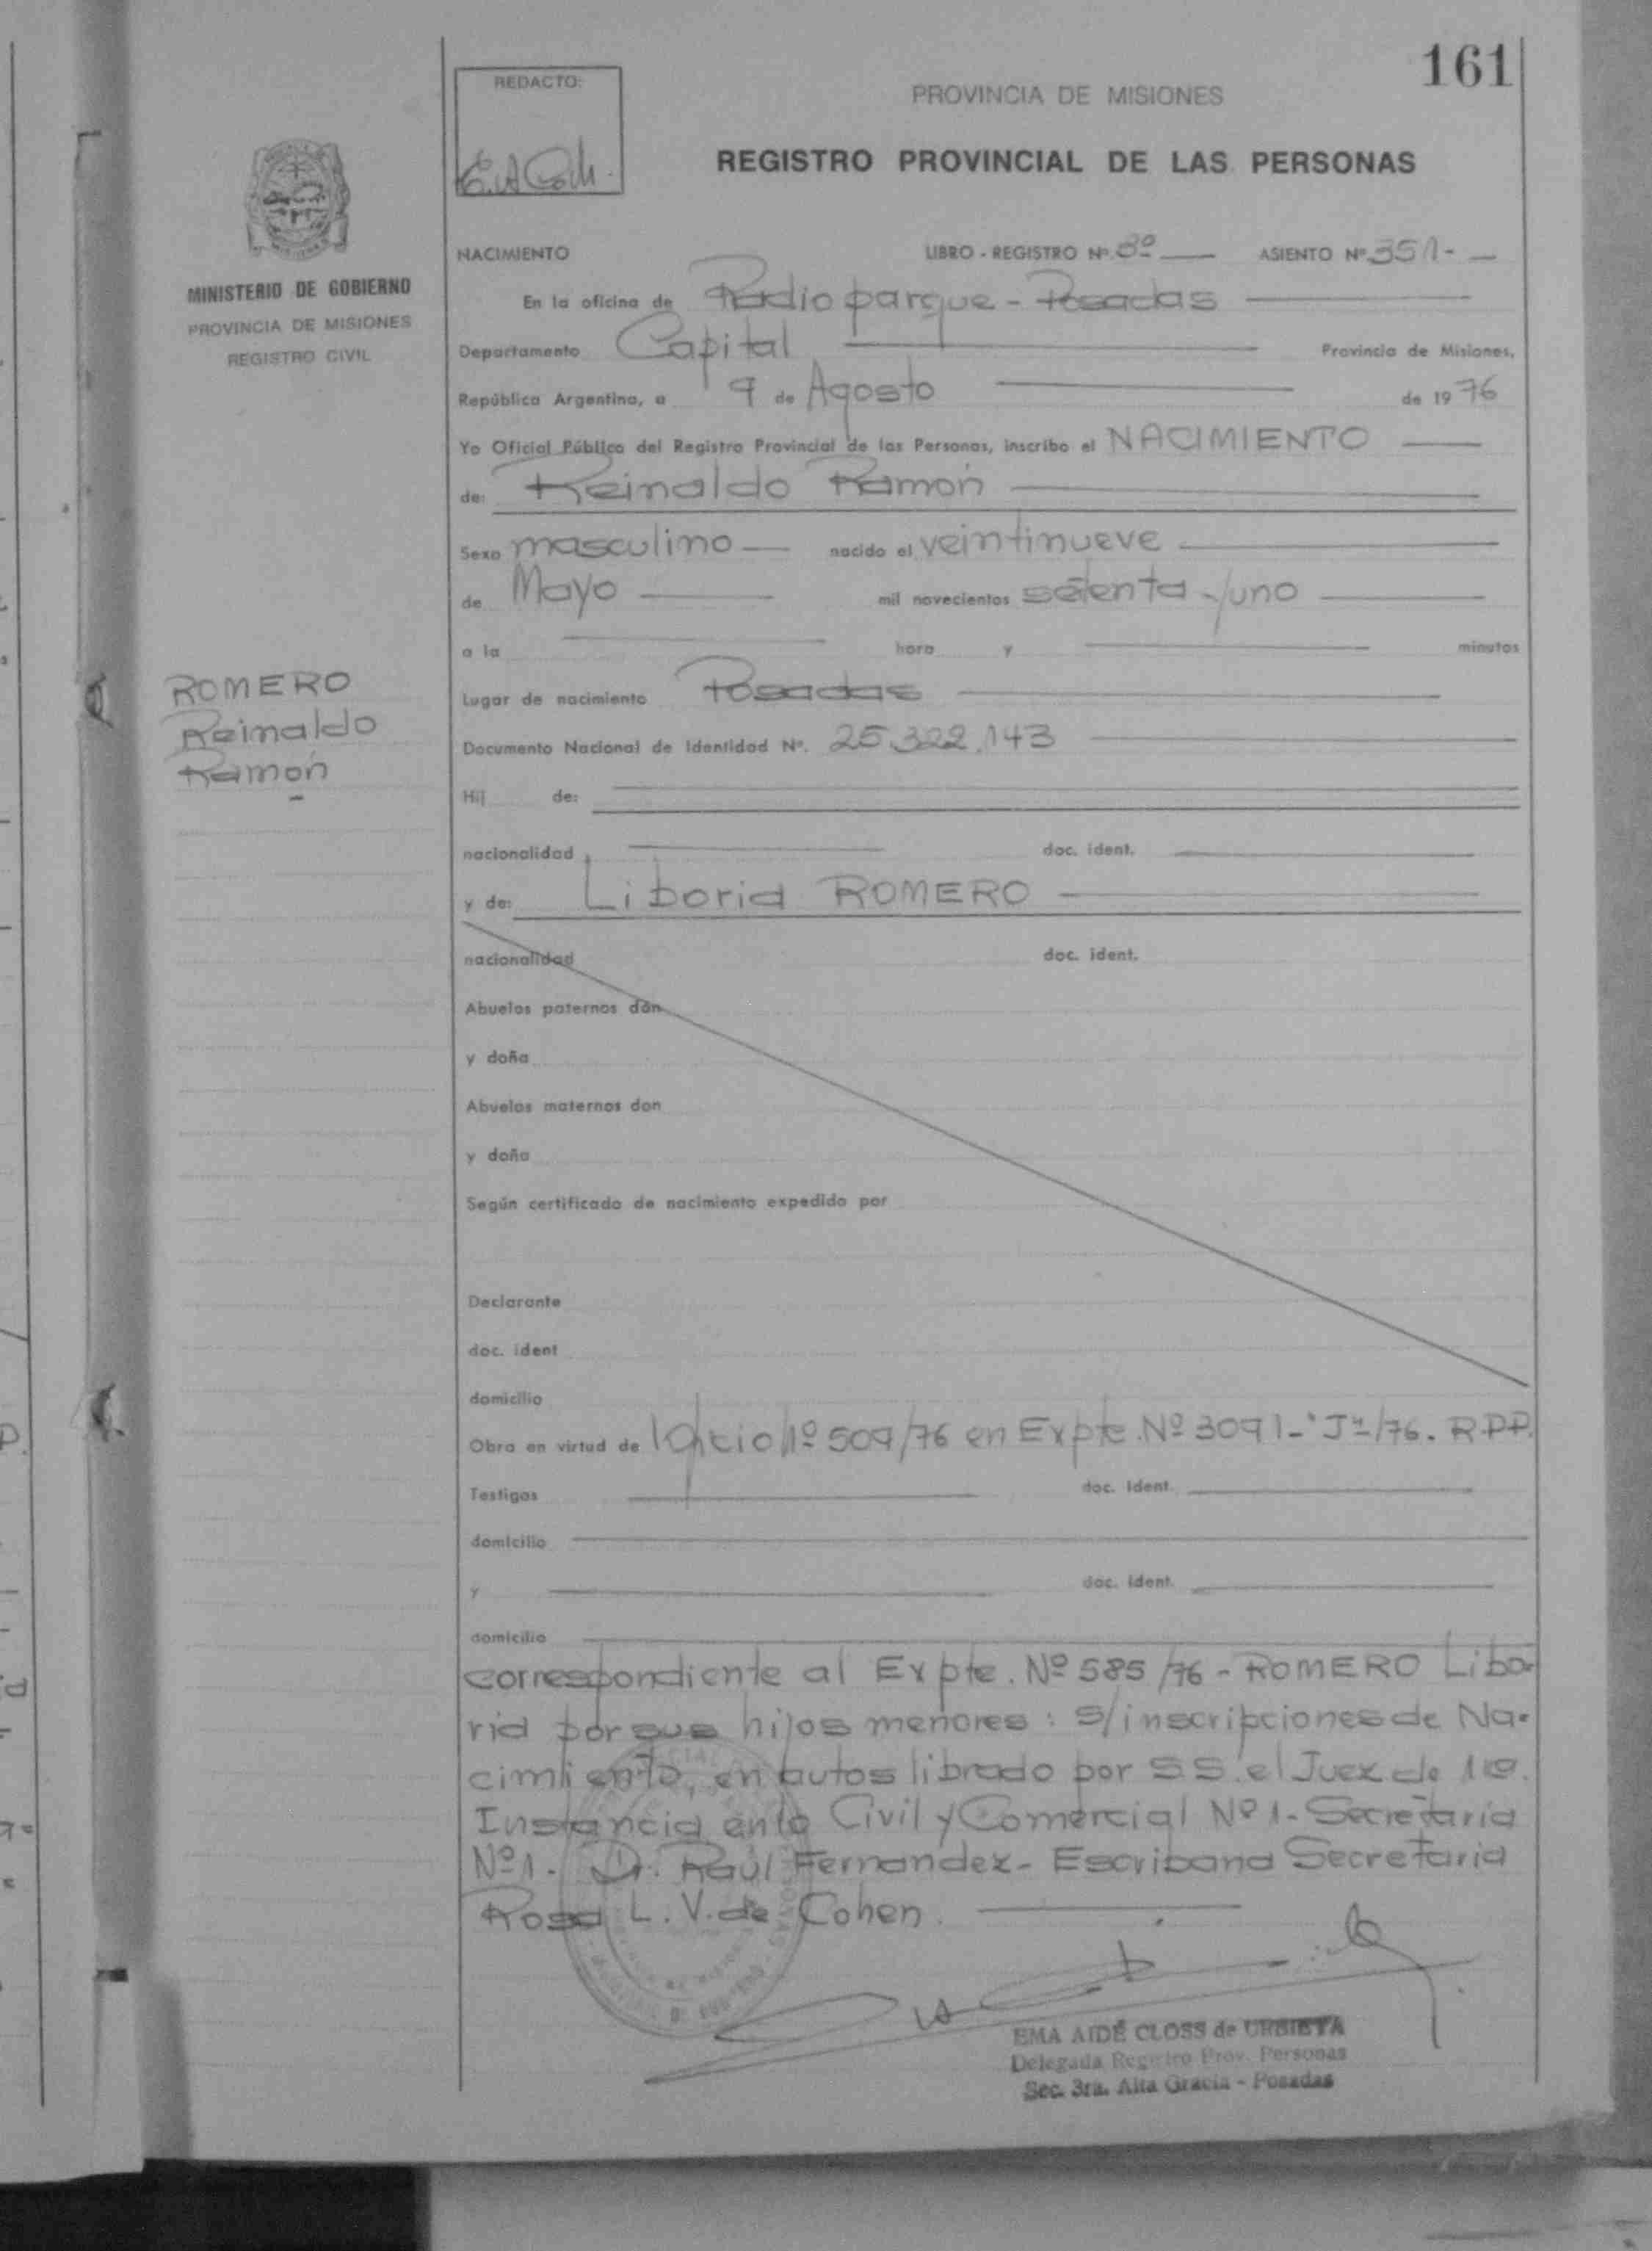 161
REDACTO:
PROVINCIA DE MISIONES
REGISTRO PROVINCIAL DE LAS PERSONAS
MINISTERIO DE GOBIERNO
PROVINCIA DE MISIONES
REGISTRO CIVIL
NACIMIENTO LIBRO - REGISTRO Nº 3º ASIENTO Nº 351-
En la oficina de Radioparque - Posadas
Departamento Capital Provincia de Misiones,
República Argentina, a 9 de Agosto de 1976
Yo Oficial Público del Registro Provincial de las Personas, inscribo el NACIMIENTO
de: Reinaldo Ramón
Sexo masculino nacido el veintinueve
de Mayo mil novecientos setenta y uno
a la hora y minutos
ROMERO
Reinaldo
Ramón
Lugar de nacimiento Posadas
Documento Nacional de Identidad Nº. 25.322.143
Hij de:
nacionalidad doc. ident.
y de: Liboria ROMERO
nacionalidad doc. ident.
Abuelos paternos don
y doña
Abuelos maternos don
y doña
Según certificado de nacimiento expedido por
Declarante
doc. ident
domicilio
Obra en virtud de Oficio Nº 509/76 en Expte. Nº 3091-"J"/76. R.P.P.
Testigos doc. ident.
domicilio
y doc. ident.
domicilio
correspondiente al Expte. Nº 585/76 - ROMERO Libo-
ria por sus hijos menores: s/inscripciones de Na-
cimiento, en autos librado por S.S. el Juez de 1ra.
Instancia en lo Civil y Comercial Nº 1 - Secretaria
Nº 1 - Dr. Raúl Fernandez - Escribana Secretaria
Rosa L. V. de Cohen.
EMA AIDÉ CLOSS de URBIETA
Delegada Registro Prov. Personas
Sec. 3ra. Alta Gracia - Posadas